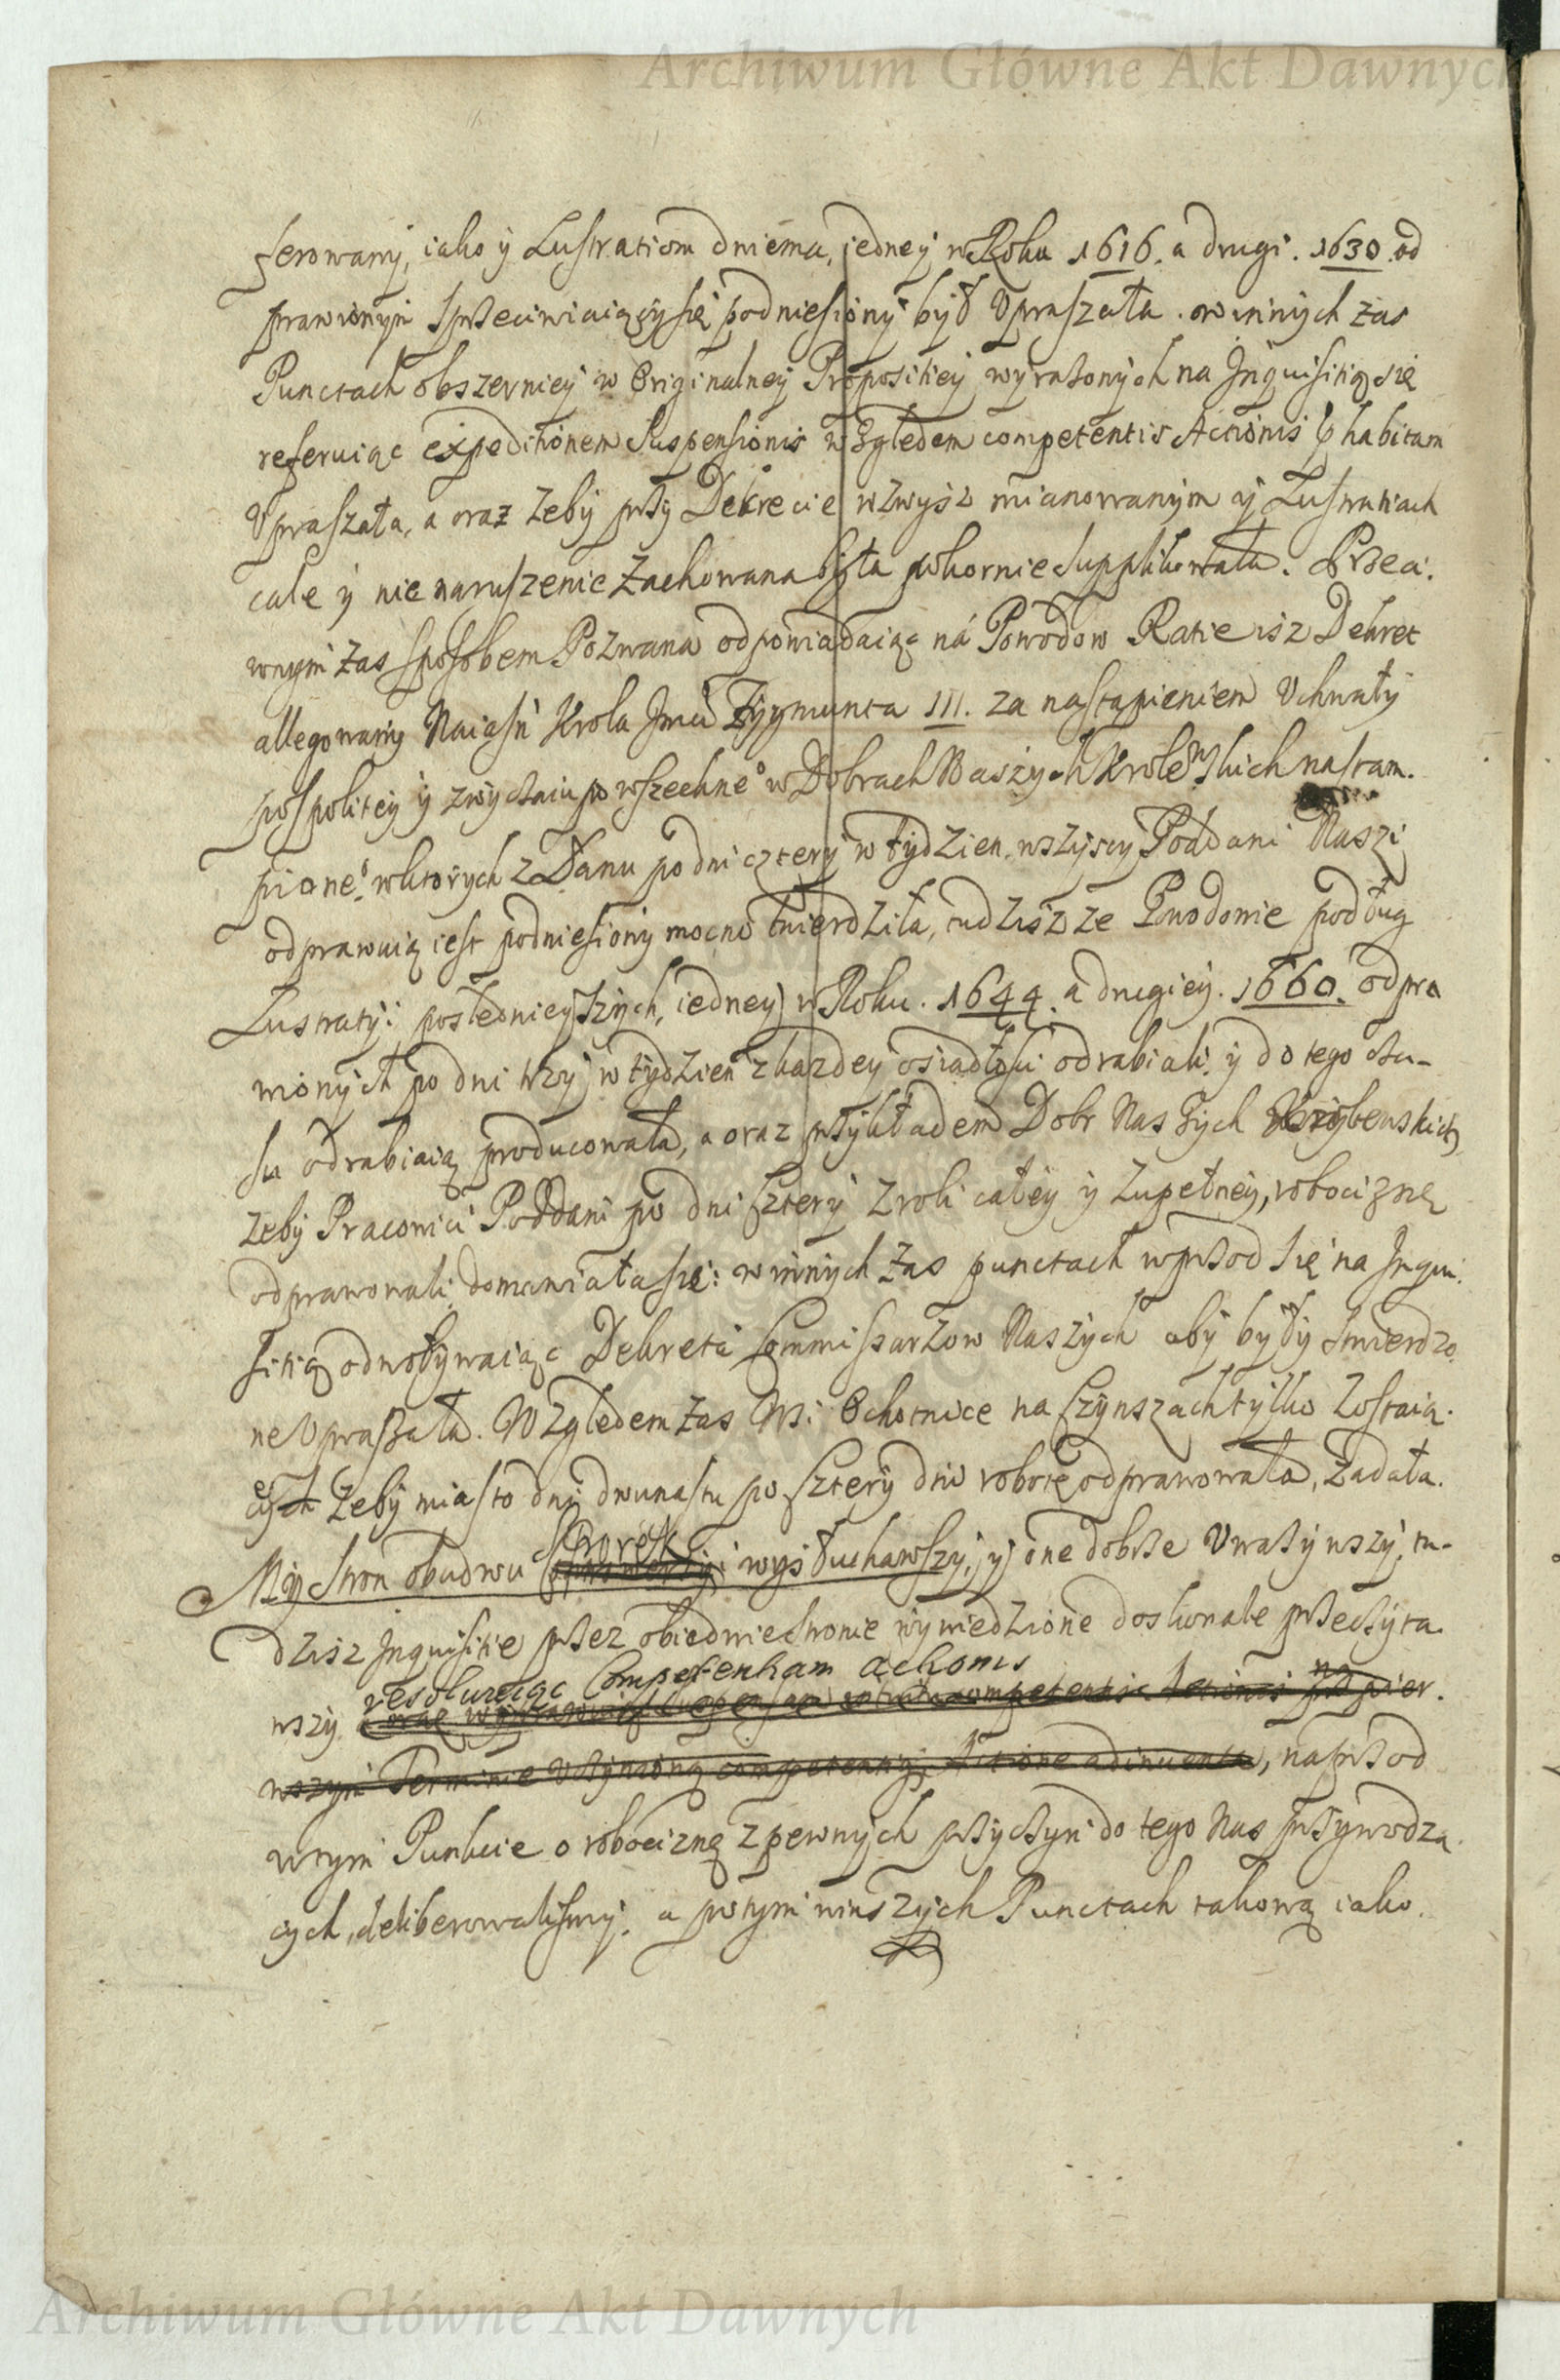 Archiwum Główne Akt Dawnych
ferowany, iako y Lustratiom dwiema, iedney w Roku 1616. a drugi. 1630. od
prawionym sprzeciwiaiący się podniesiony był Upraszała. w innych zas
Punctach obszerniey w Originalney Propositiey wyrażonych na Inquisitią się
referuiąc expeditionem Suspensionis względem competentis Actionis habitam
Upraszała, a oraz zeby przy Dekrecie wzwysz mianowanym y Lustratiach
cale y nienaruszenie zachowana była pokornie supplikowała. Przeci.
wnym zas sposobem Pozwana odpowiadaiąc na Powodow Ratie isz Dekret
allegowany Naiasn Krola Jmci Zygmunta III. za nastąpieniem Uchwały
pospolitey y zwyczaiu powszechneo w Dobrach Naszych Krolewskich nastam.
pioneo, wktorych z Łanu po dni cztery w tydzien wszyscy Poddani Naszi
odprawuią iest podniesiony mocno twierdziła, tudzisz ze Powodowie podług
Lustratyi poslednieyszych, iedney w Roku. 1644. a drugiey. 1660. odpra
wionych po dni trzy w tydzien z kazdey osiadłosci odrabiali y do tego cza-
su odrabiaią producowała, a oraz przykładem Dobr Naszych
zeby Pracowici Poddani po dni cztery z roli całey y zupełney, robociznę
odprawowali domawiała się: w innych zas punctach wprzod się na Inqui.
sitią odwoływaiąc Dekreta Commissarzow Naszych aby były stwierdzo.
ne Upraszała. Względem zas Wsi Ochotnice na czynszach tylko zostaią.
cych zeby miasto dni dwunastu po cztery dni robotę odprawowała, żadała.
My stron obudwu Sporek wysłuchawszy, y one dobrze Uważywszy, tu-
dzisz Inquisitie przez obiedwie stronie wywiedzione doskonale przeczyta.
resolwuiąc Competentiam actionis
wszy
wszym Terminie Uczynioną competentiy Actione adinventa, naprzod
wtym Punkcie o robociznę z pewnych przyczyn do tego Nas przywodzą.
cych, deliberowalismy. a potym w inszych Punctach takową iako.
Archiwum Główne Akt Dawnych